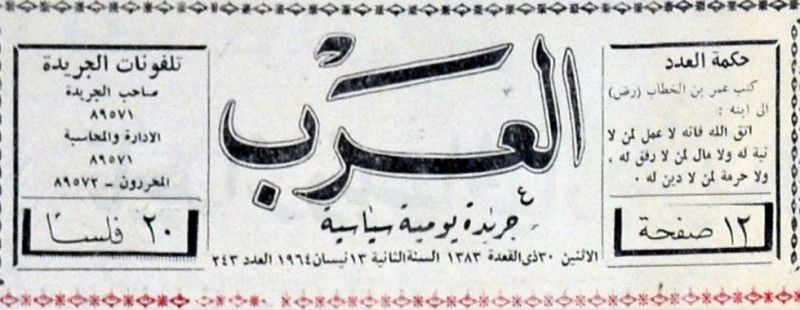 حكمة العدد
كتب عمر بن الخطاب (رض)
الى ابنه :
اتق الله فانه لا عمل لمن لا
نية له ولا مال لمن لا رفق له ،
ولا حرمة لمن لا دين له .
١٢ صفحة
العرب
جريدة يومية سياسية
الاثنين ٣٠ ذي القعدة ١٣٨٣ السنة الثانية ١٣ نيسان ١٩٦٤ العدد ٢٤٣
تلفونات الجريدة
صاحب الجريدة
٨٩٥٧١
الادارة والمحاسبة
٨٩٥٧١
المحررون – ٨٩٥٧٢
٢٠ فلسًا